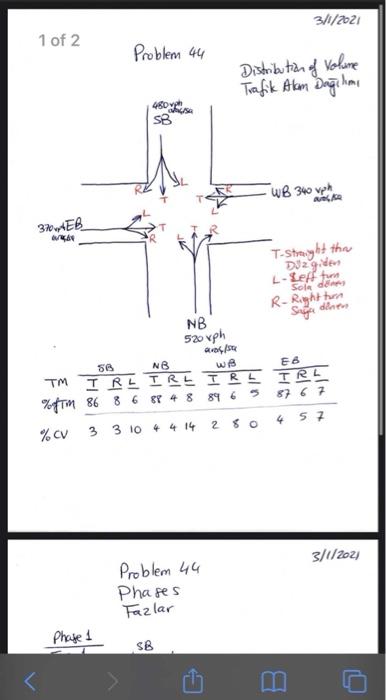 3/1/2021
1 of 2
Problem 44
Distribution of Volume
Trafik Akım Dağılımı
480 vph
araç/sa
SB
R T L
R
T
L
WB 340 vph
araç/sa
370 vph EB
araç/sa
L
T
R
L T R
T-straight thru
Düz giden
L-Left turn
Sola dönen
R-Right turn
Sağa dönen
NB
520 vph
araç/sa
SB NB WB EB
TM T R L T R L T R L T R L
% of TM 86 8 6 88 4 8 89 6 5 87 6 7
% CV 3 3 10 4 4 14 2 8 0 4 5 7
3/1/2021
Problem 44
Phases
Fazlar
Phase 1
SB